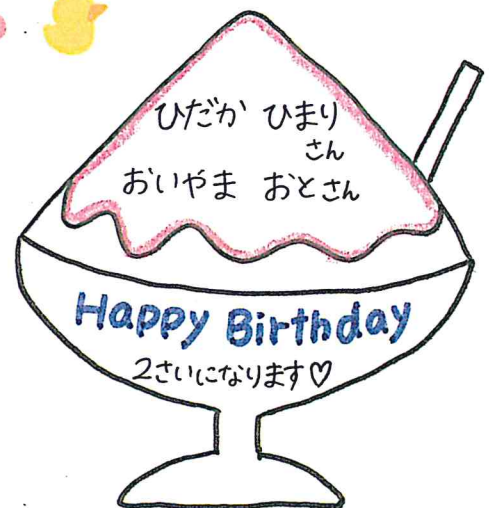 ひだか ひまり
さん
おいやま おとさん
Happy Birthday
2さいになります♡